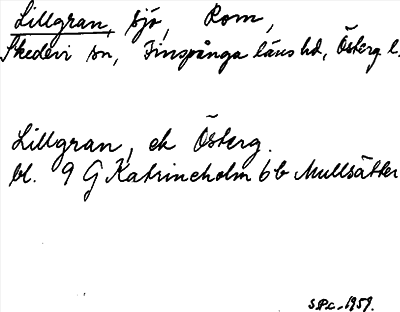 Lillgran, sjö, Rom,
Skedevi sn, Finspånga läns hd, Österg l.
Lillgran, ek Österg.
bl. 9 G Katrineholm 6b Mullsätter
S.P.c. 1959.